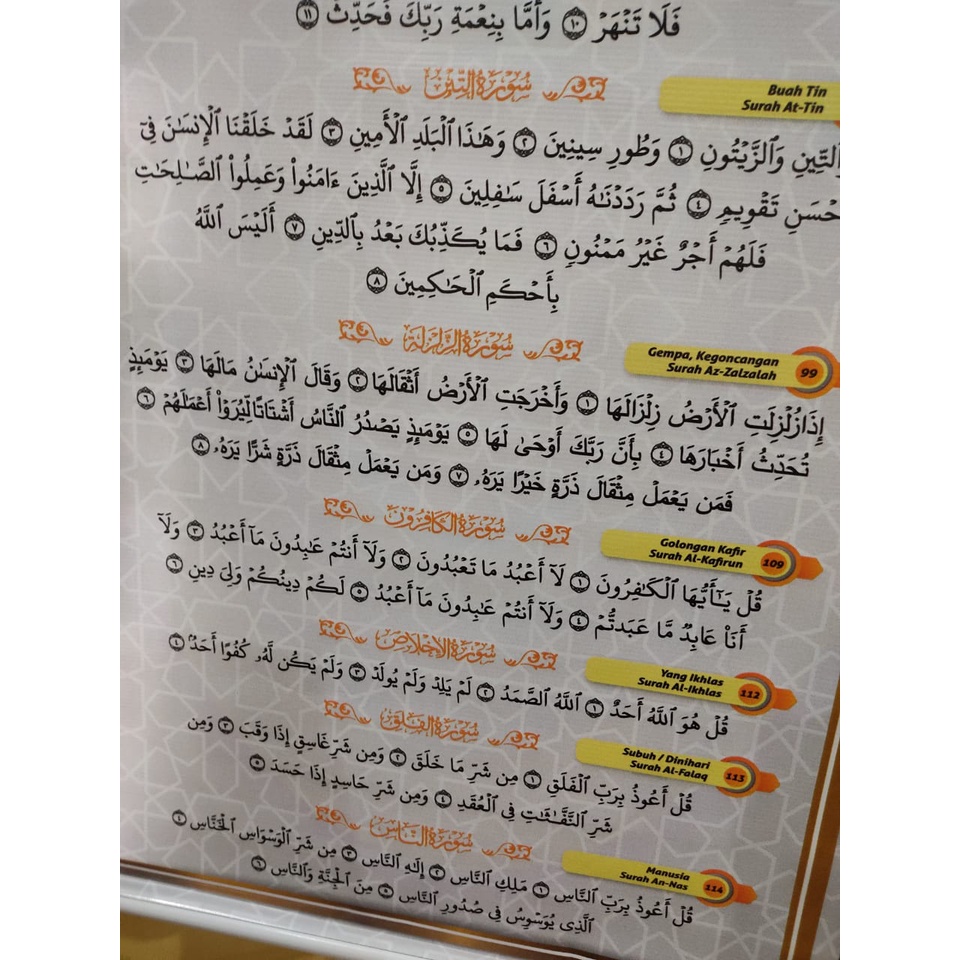 فَلَا تَنۡهَرۡ ١٠ وَأَمَّا بِنِعۡمَةِ رَبِّكَ فَحَدِّثۡ ١١
سُورَةُ التِّينِ
Buah Tin
Surah At-Tin
وَٱلتِّينِ وَٱلزَّيۡتُونِ ١ وَطُورِ سِينِينَ ٢ وَهَٰذَا ٱلۡبَلَدِ ٱلۡأَمِينِ ٣ لَقَدۡ خَلَقۡنَا ٱلۡإِنسَٰنَ فِيٓ
أَحۡسَنِ تَقۡوِيمٖ ٤ ثُمَّ رَدَدۡنَٰهُ أَسۡفَلَ سَٰفِلِينَ ٥ إِلَّا ٱلَّذِينَ ءَامَنُواْ وَعَمِلُواْ ٱلصَّٰلِحَٰتِ
فَلَهُمۡ أَجۡرٌ غَيۡرُ مَمۡنُونٖ ٦ فَمَا يُكَذِّبُكَ بَعۡدُ بِٱلدِّينِ ٧ أَلَيۡسَ ٱللَّهُ
بِأَحۡكَمِ ٱلۡحَٰكِمِينَ ٨
سُورَةُ الزَّلْزَلَةِ
Gempa, Kegoncangan
Surah Az-Zalzalah
99
إِذَا زُلۡزِلَتِ ٱلۡأَرۡضُ زِلۡزَالَهَا ١ وَأَخۡرَجَتِ ٱلۡأَرۡضُ أَثۡقَالَهَا ٢ وَقَالَ ٱلۡإِنسَٰنُ مَالَهَا ٣ يَوۡمَئِذٖ
تُحَدِّثُ أَخۡبَارَهَا ٤ بِأَنَّ رَبَّكَ أَوۡحَىٰ لَهَا ٥ يَوۡمَئِذٖ يَصۡدُرُ ٱلنَّاسُ أَشۡتَاتٗا لِّيُرَوۡاْ أَعۡمَٰلَهُمۡ ٦
فَمَن يَعۡمَلۡ مِثۡقَالَ ذَرَّةٍ خَيۡرٗا يَرَهُۥ ٧ وَمَن يَعۡمَلۡ مِثۡقَالَ ذَرَّةٖ شَرّٗا يَرَهُۥ ٨
سُورَةُ الكَافِرُونَ
Golongan Kafir
Surah Al-Kafirun
109
قُلۡ يَٰٓأَيُّهَا ٱلۡكَٰفِرُونَ ١ لَآ أَعۡبُدُ مَا تَعۡبُدُونَ ٢ وَلَآ أَنتُمۡ عَٰبِدُونَ مَآ أَعۡبُدُ ٣ وَلَآ
أَنَا۠ عَابِدٞ مَّا عَبَدتُّمۡ ٤ وَلَآ أَنتُمۡ عَٰبِدُونَ مَآ أَعۡبُدُ ٥ لَكُمۡ دِينُكُمۡ وَلِيَ دِينِ ٦
سُورَةُ الإِخْلَاصِ
Yang Ikhlas
Surah Al-Ikhlas
112
قُلۡ هُوَ ٱللَّهُ أَحَدٌ ١ ٱللَّهُ ٱلصَّمَدُ ٢ لَمۡ يَلِدۡ وَلَمۡ يُولَدۡ ٣ وَلَمۡ يَكُن لَّهُۥ كُفُوًا أَحَدُۢ ٤
سُورَةُ الفَلَقِ
Subuh / Dinihari
Surah Al-Falaq
113
قُلۡ أَعُوذُ بِرَبِّ ٱلۡفَلَقِ ١ مِن شَرِّ مَا خَلَقَ ٢ وَمِن شَرِّ غَاسِقٍ إِذَا وَقَبَ ٣ وَمِن
شَرِّ ٱلنَّفَّٰثَٰتِ فِي ٱلۡعُقَدِ ٤ وَمِن شَرِّ حَاسِدٍ إِذَا حَسَدَ ٥
سُورَةُ النَّاسِ
Manusia
Surah An-Nas
114
قُلۡ أَعُوذُ بِرَبِّ ٱلنَّاسِ ١ مَلِكِ ٱلنَّاسِ ٢ إِلَٰهِ ٱلنَّاسِ ٣ مِن شَرِّ ٱلۡوَسۡوَاسِ ٱلۡخَنَّاسِ ٤
ٱلَّذِي يُوَسۡوِسُ فِي صُدُورِ ٱلنَّاسِ ٥ مِنَ ٱلۡجِنَّةِ وَٱلنَّاسِ ٦